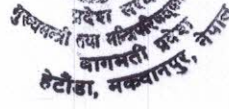 प्रदेश सरकार
मुख्यमन्त्री तथा मन्त्रिपरिषद्को
बागमती प्रदेश
हेटौंडा, मकवानपुर, नेपाल